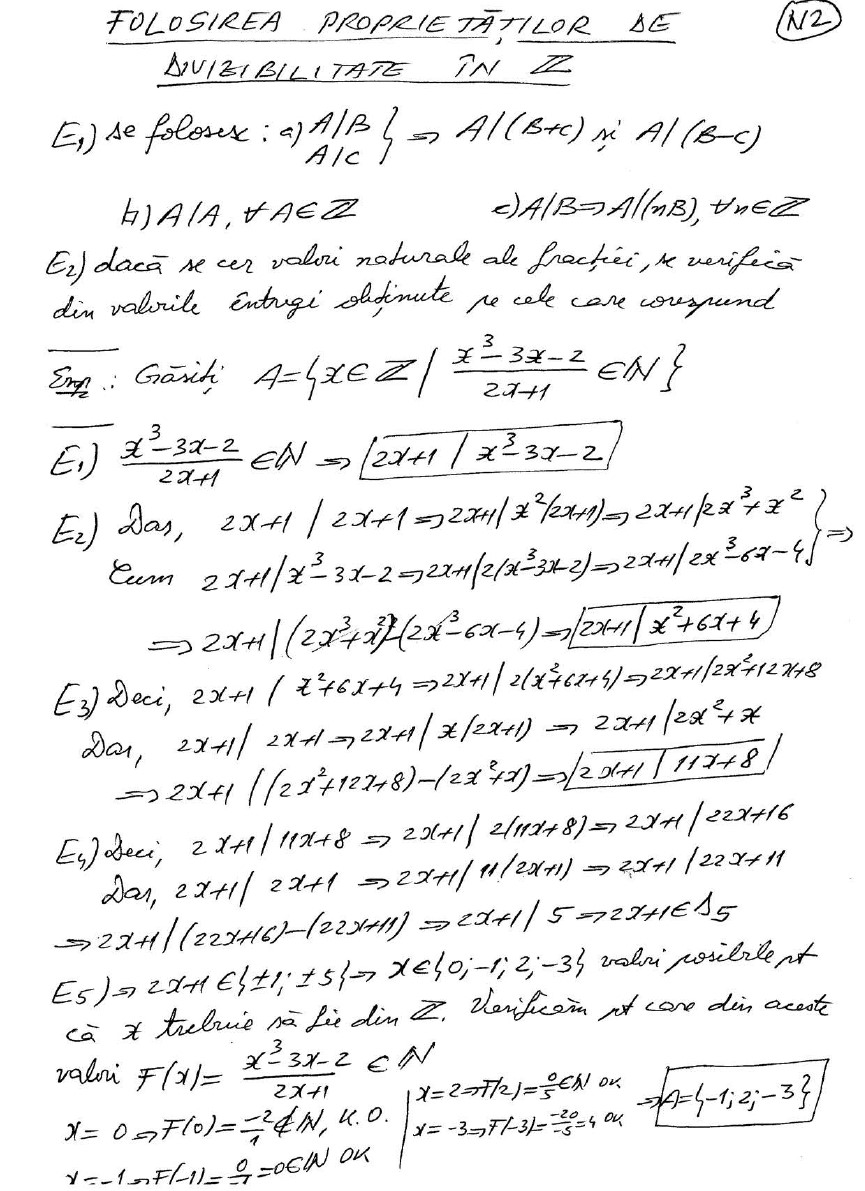 FOLOSIREA PROPRIETĂȚILOR DE
N2
DIVIZIBILITATE ÎN ℤ
E₁) se folosesc : a) A|B } ⇒ A|(B+C) și A|(B-C)
A|C
b) A|A, ∀A∈ℤ c) A|B⇒A|(nB), ∀n∈ℤ
E₂) dacă se cer valori naturale ale fracției, se verifică
din valorile întregi obținute pe cele care corespund
Emp : Găsiți A={x∈ℤ | x³-3x-2 / 2x+1 ∈ℕ}
E₁) x³-3x-2 / 2x+1 ∈ℕ ⇒ 2x+1 | x³-3x-2
E₂) Dar, 2x+1 | 2x+1 ⇒ 2x+1 | x²(2x+1) ⇒ 2x+1 | 2x³+x² } ⇒
Cum 2x+1 | x³-3x-2 ⇒ 2x+1 | 2(x³-3x-2) ⇒ 2x+1 | 2x³-6x-4
⇒ 2x+1 | (2x³+x²)-(2x³-6x-4) ⇒ 2x+1 | x²+6x+4
E₃) Deci, 2x+1 | x²+6x+4 ⇒ 2x+1 | 2(x²+6x+4) ⇒ 2x+1 | 2x²+12x+8
Dar, 2x+1 | 2x+1 ⇒ 2x+1 | x(2x+1) ⇒ 2x+1 | 2x²+x
⇒ 2x+1 | (2x²+12x+8)-(2x²+x) ⇒ 2x+1 | 11x+8
E₄) Deci, 2x+1 | 11x+8 ⇒ 2x+1 | 2(11x+8) ⇒ 2x+1 | 22x+16
Dar, 2x+1 | 2x+1 ⇒ 2x+1 | 11(2x+1) ⇒ 2x+1 | 22x+11
⇒ 2x+1 | (22x+16)-(22x+11) ⇒ 2x+1 | 5 ⇒ 2x+1∈D₅
E₅) ⇒ 2x+1∈{±1; ±5} ⇒ x∈{0;-1;2;-3} valori posibile pt
că x trebuie să fie din ℤ. Verificăm pt care din aceste
valori F(x)= x³-3x-2 / 2x+1 ∈ℕ
x= 0 ⇒ F(0)= -2/1 ∉ℕ, K.O.
x=-1 ⇒ F(-1)= 0/-1 =0∈ℕ OK
x=2⇒F(2)= 0/5 ∈ℕ OK
x=-3⇒F(-3)= -20/-5 =4 OK
⇒ A={-1;2;-3}